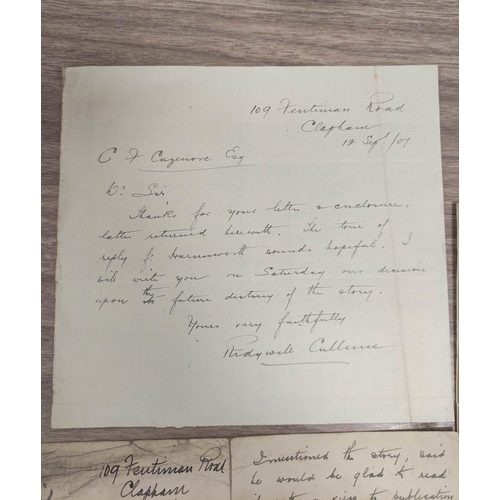 109 Fentiman Road
Clapham
12 Sep /01
C F Cazenove Esq
Dr Sir
Thanks for your letter & enclosure,
latter returned herewith. The tone of
reply fr Harmsworth sounds hopeful. I
will write you on Saturday our decision
upon the future destiny of the story.
Yours very faithfully
Ridgwell Cullum
109 Fentiman Road
Clapham
I mentioned the story, said
he would be glad to read
view to publication